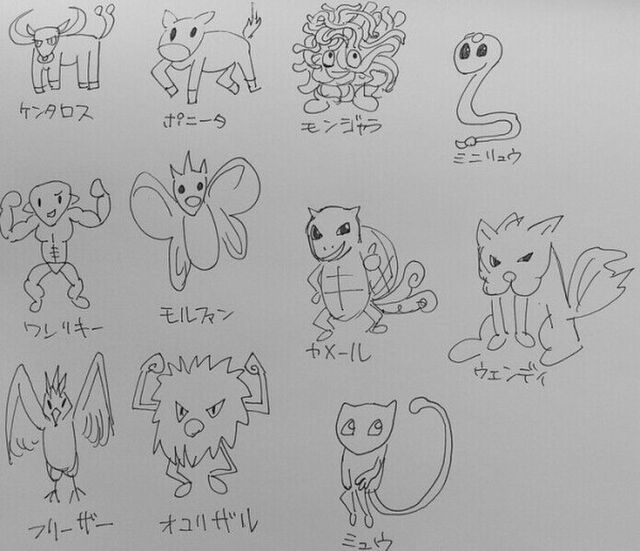 ケンタロス
ポニータ
モンジャラ
ミニリュウ
ワンリキー
モルファン
カメール
ウェンディ
フリーザー
オコリザル
ミュウ